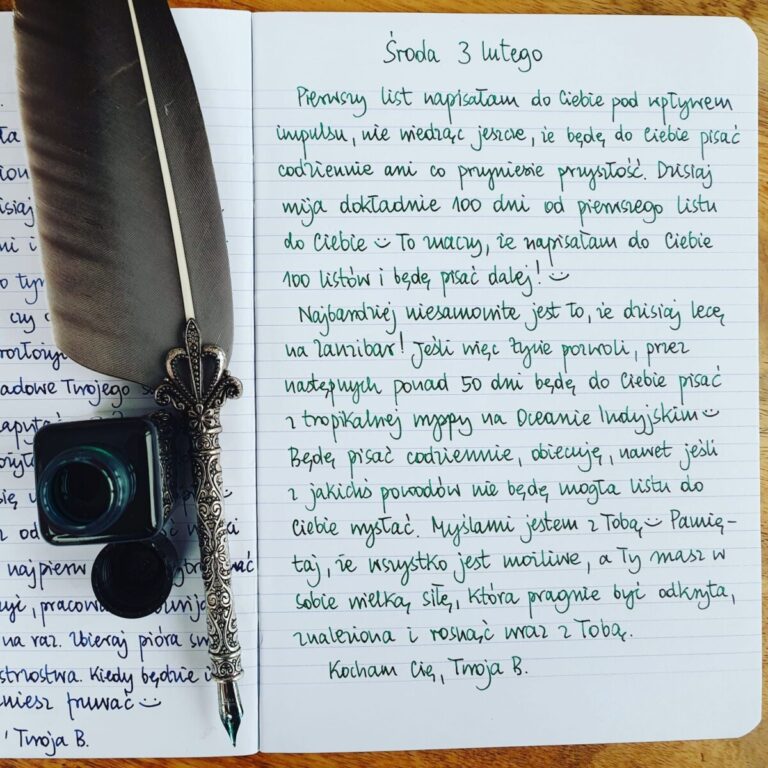 ła
isiaj
ni i
o tym
czy c
adowe Twojego
zapytać
się
z od
najpierw
, pracowa
na raz. Zbieraj pióra
strzostwa. Kiedy będzie
fruwać :)
Twoja B.
Środa 3 lutego
Pierwszy list napisałam do Ciebie pod wpływem
impulsu, nie wiedząc jeszcze, że będę do Ciebie pisać
codziennie ani co przyniesie przyszłość. Dzisiaj
mija dokładnie 100 dni od pierwszego listu
do Ciebie :) To znaczy, że napisałam do Ciebie
100 listów i będę pisać dalej! :)
Najbardziej niesamowite jest to, że dzisiaj lecę
na Zanzibar! Jeśli więc życie pozwoli, przez
następnych ponad 50 dni będę do Ciebie pisać
z tropikalnej wyspy na Oceanie Indyjskim :)
Będę pisać codziennie, obiecuję, nawet jeśli
z jakichś powodów nie będę mogła listu do
Ciebie wysłać. Myślami jestem z Tobą :) Pamię-
taj, że wszystko jest możliwe, a Ty masz w
sobie wielką siłę, która pragnie być odkryta,
znaleziona i rosnąć wraz z Tobą.
Kocham Cię, Twoja B.